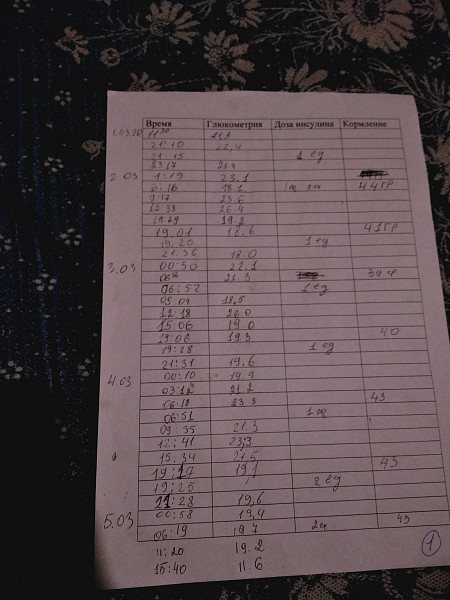 Время Глюкометрия Доза инсулина Кормление
1.03.20 11 30
21:10 22,4
21 15 1 ед
23:17
2.03 1:19 23,1
6:16 18.1 44гр
9:17 23.6
12:38 26.4
19.2
19.01 18.6 41гр
19.20 1 ед
21.36 18.0
3.03 00:50 22.1
21.3 39 г
06:52 1 ед
09:09 18,5
12:18 26.0
15:06 19.0
19:06 19.3 40
19:28 1 ед
21:31 19.6
4.03 00:10 19.9
03:12 21.2
06:18 23.3 43
06:51 1 ед
09 35 21.3
12:41 23,3
15.34 21,5
19:17 19,1 43
19:25 2 ед
21:28 19,6
00:58 19,4
5.03 06:19 19.7 2 43
11:20 19.2
15:40 11.6
1